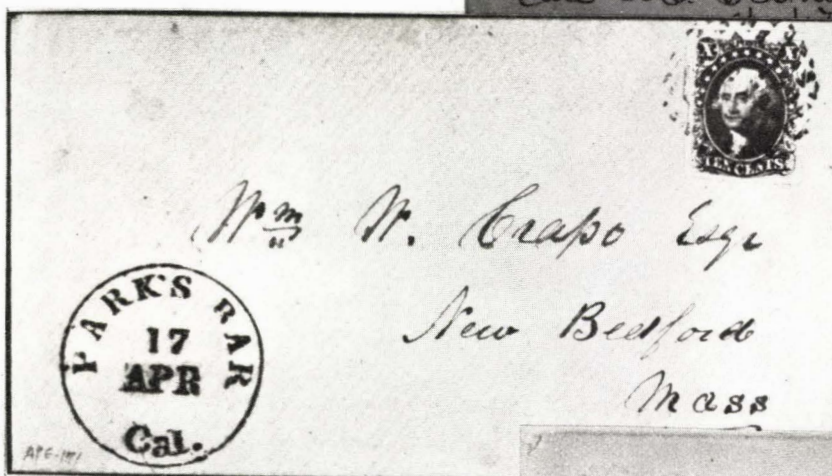 X X
TEN CENTS
Wm W. Crapo Esqr
New Bedford
Mass
PARK'S BAR
17
APR
Cal.